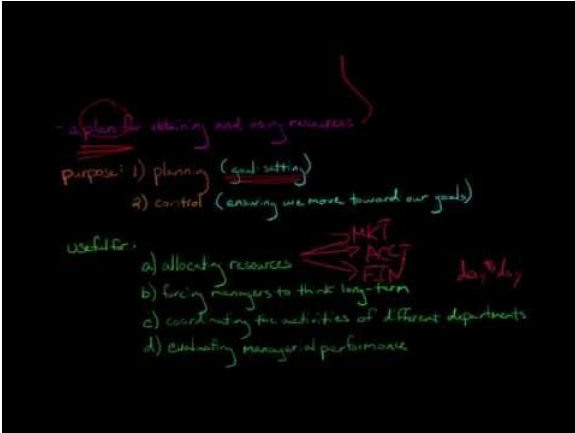 - a plan for obtaining and using resources
purpose: 1) planning (goal-setting)
2) control (ensuring we move toward our goals)
useful for:
MKT
a) allocating resources ACCT
FIN day to day
b) forcing managers to think long-term
c) coordinating the activities of different departments
d) evaluating managerial performance